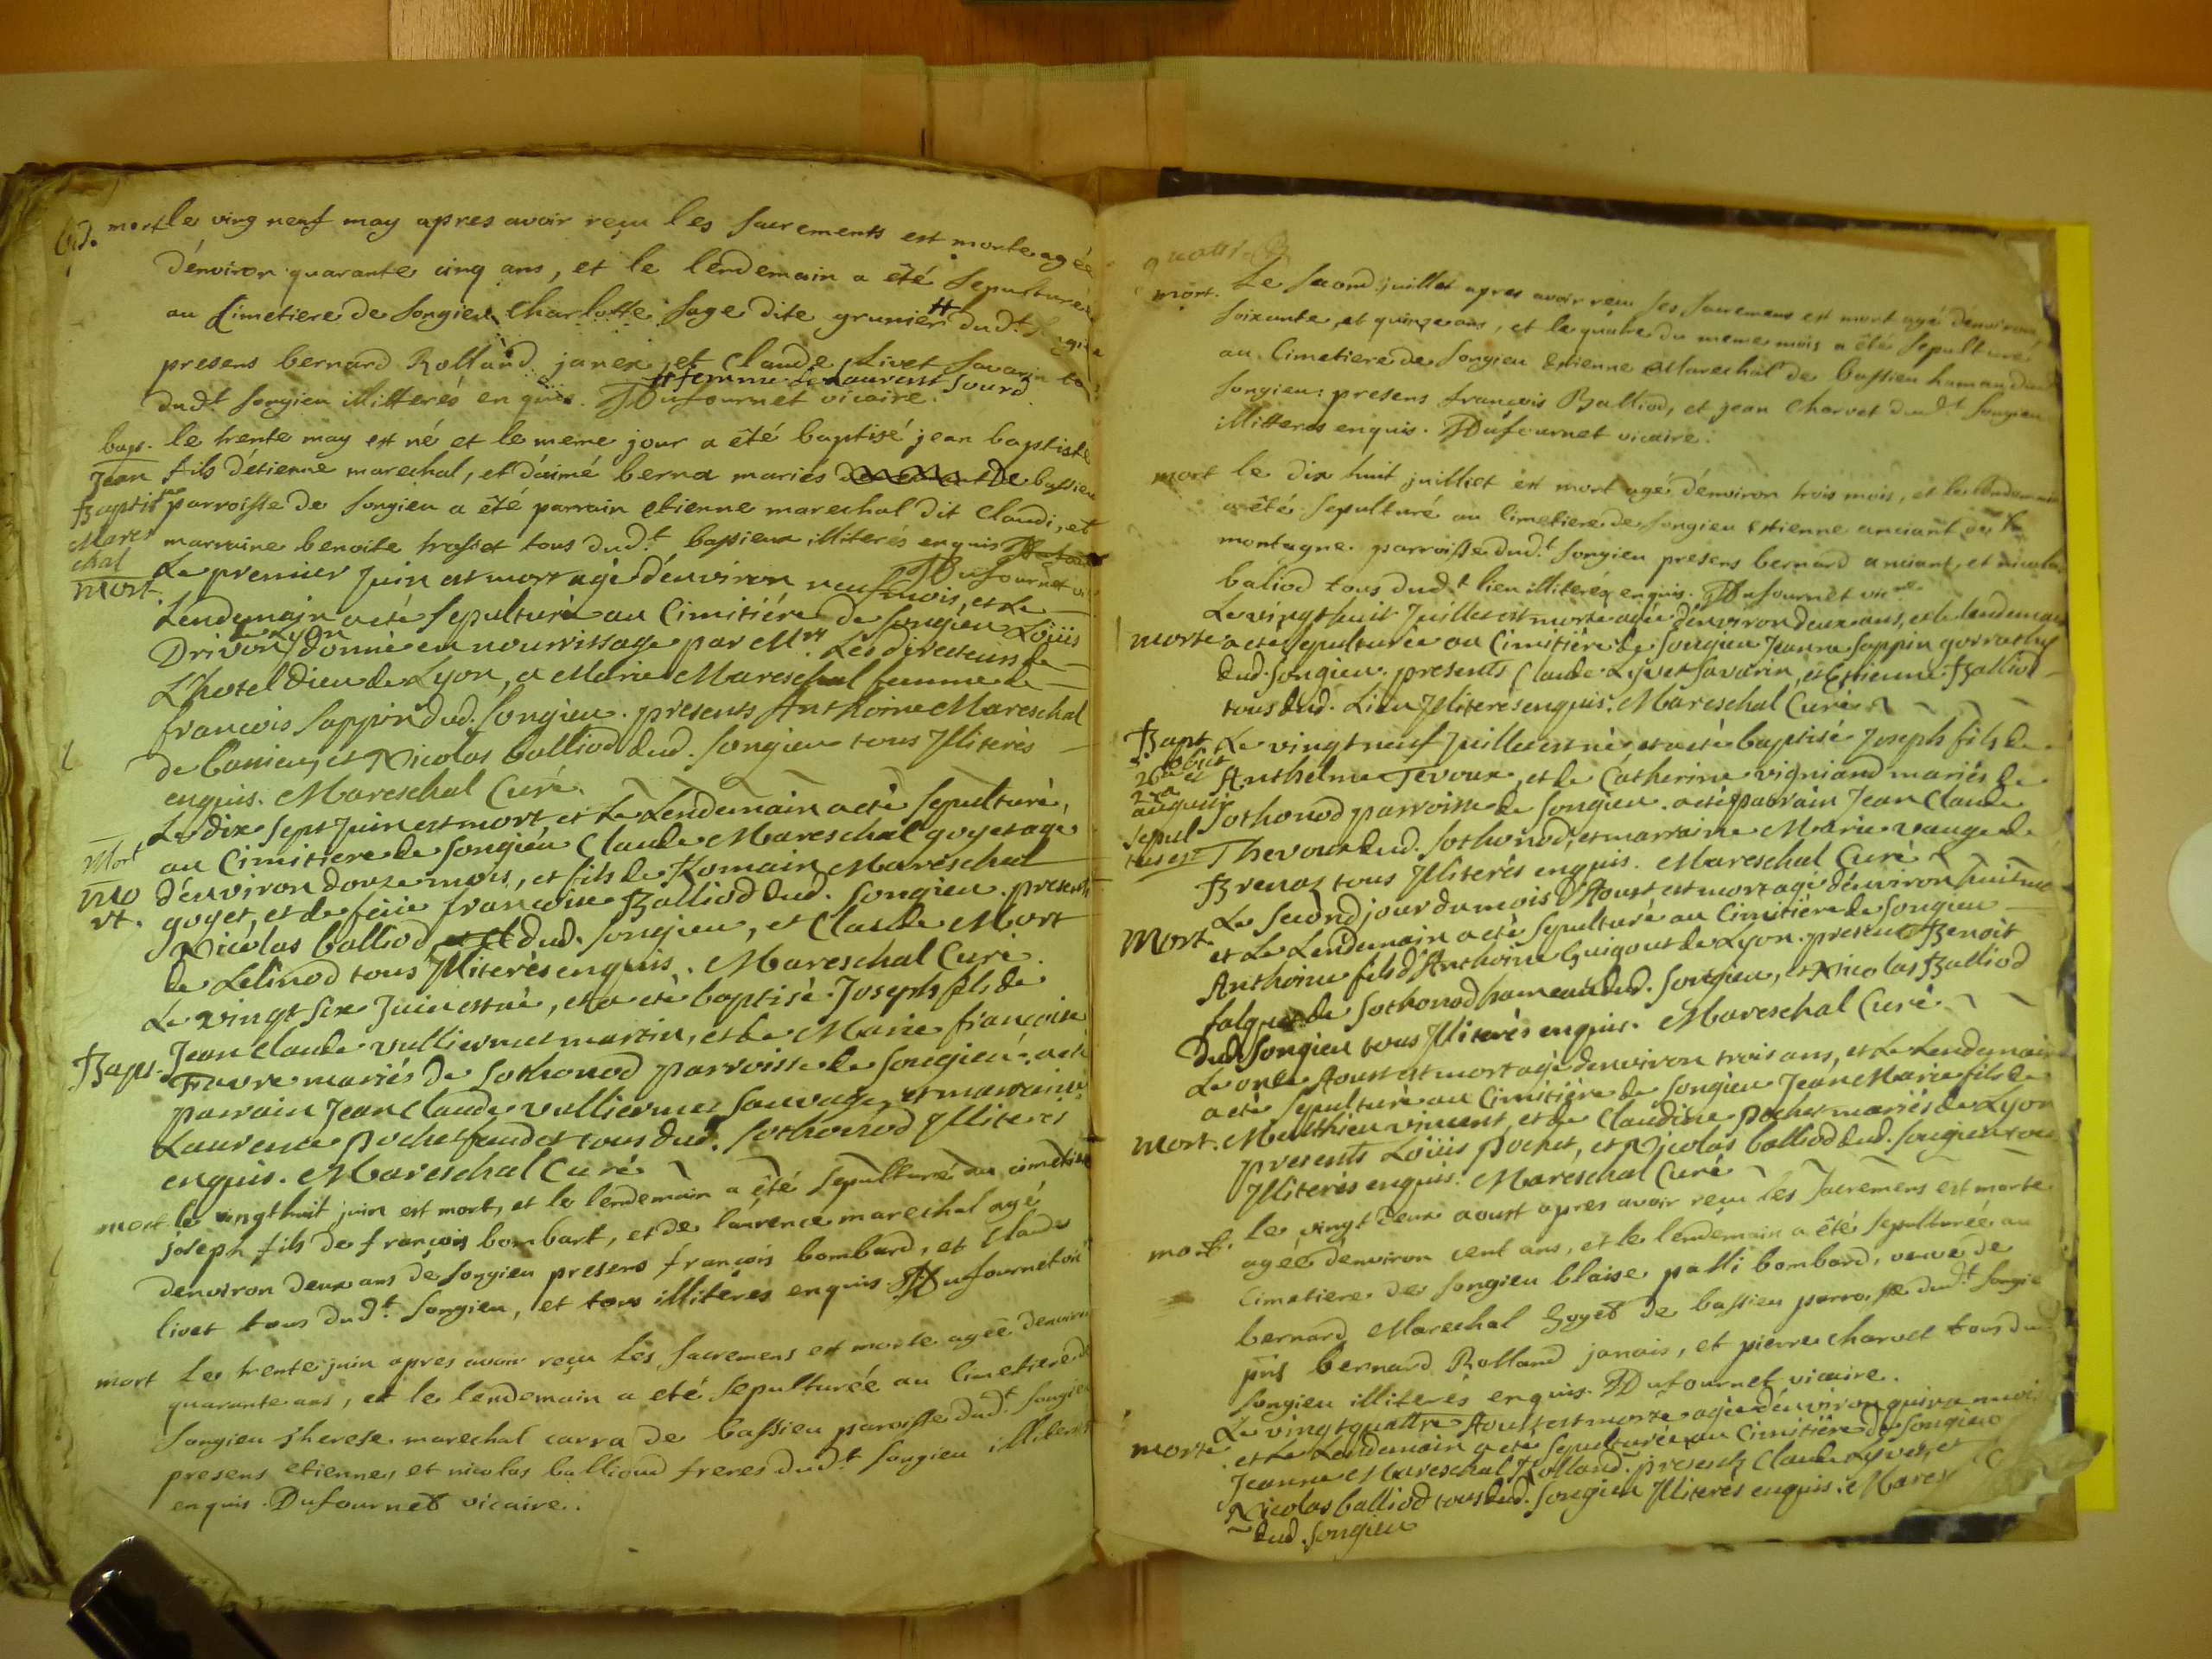 mort le ving neuf may apres avoir reçu les sacrements est morte agée
d'environ quarante cinq ans, et le lendemain a été sepulturée
au Cimetiere de Songieu Charlotte sage dite grunier # dud.t
presens bernard Rolland janex et Claude Livet Savarin
# femme de Laurent Sourd
dud.t Songieu illitterés enquis. Dufournet vicaire.
bapt. le trente may est né et le meme jour a été baptisé jean baptiste
Jean fils d'étienne marechal, et d'aimé berna mariés de bassieu
Baptiste parroisse de Songieu a été parrain etienne marechal dit Claudi, et
Mares marraine benoite trosset tous dud.t bassieu illiterés enquis
chal Dufournet vi
mort. Le premier Juin est mort agé d'environ neuf mois, et Le
Lendemain a eté sepulturé au Cimitiére de Songieu Loüis
Drivon de Lyon donné en nourrissage par M.rs Les directeurs de
L'hotel Dieu de Lyon, a Marie Mareschal femme de
françois Sappin dud. Songieu. presents Anthoine Mareschal
de bassieu, et Nicolas balliod dud. Songieu tous Illiterés
enquis. Mareschal Curé.
Le dix sept Juin est mort et Le Lendemain a eté sepulturé,
Mort au Cimitiere de Songieu Claude Mareschal goyet agé
mo d'environ douze mois, et fils de Romain Mareschal
rt. goyet, et de feüe françoise Balliod dud. Songieu. presents
Nicolas balliod dud. Songieu, et Claude Mort
de Lelinod tous Illiterés enquis. Mareschal Curé.
Le vingt six Juin est né, et a eté baptisé Joseph fils de
Jean Claude vulliermet martin, et de Marie françoise
Bapt. Favre mariés de Sothonod parroisse de Songieu. a eté
parrain Jean Claude vulliermet Sauvage, et marraine
Laurence pochet tous dud. Sothonod Illiterés
enquis. Mareschal Curé
mort le vingthuit juin est mort, et le lendemain a été sepulturé au cimetiere
joseph fils de françois bombart, et de laurence marechal agé
denviron deux ans de Songieu presens françois bombard, et Claude
livet tous dud.t Songieu, et tous illiterés enquis. Dufournet vic
mort Le trente juin apres avoir reçu les sacremens est morte agée denviron
quarante ans, et le lendemain a eté sepulturée au Cimetiere de
Songieu therese marechal carra de bassieu paroisse dud.t Songieu
presens etienne, et nicolas ballioud freres dud.t Songieu illiterés
enquis. Dufournet vicaire.
mort. Le second juillet apres avoir reçu ses sacremens est mort agé d'environ
soixante, et quinze ans, et le quatre du meme mois a été sepulturé
au Cimetiere de Songieu etienne Marechal de bassieu hameau dud
Songieu: presens françois Balliod, et jean Charvet dud.t Songieu
illitteres enquis. Dufournet vicaire.
mort le dix huit juilliet est mort agé d'environ trois mois, et le lendemain
a été sepulturé au Cimetiere de Songieu estienne anciant de la
montagne parroisse dud.t Songieu presens bernard anciant, et nicolas
baliod tous dud.t lieu illiterés enquis. Dufournet vic.re
Le vingt huit Juillet est morte agée d'environ deux ans, et le lendemain
morte a eté sepulturée au Cimitiére de Songieu Jeanne Sappin
dud. Songieu. presents Claude Livet Savarin, et Estienne Balliod
tous dud. Lieu Illiterés enquis. Mareschal Curé
Bapt Le vingt neuf Juillet est né et a eté baptisé Joseph fils de
Anthelme Tevoux, et de Catherine vigniand mariés de
Sothonod parroisse de Songieu. a eté parrain Jean Claude
sepul Thevoux dud. Sothonod, et marraine Marie vauge de
Brenaz tous Illiterés enquis. Mareschal Curé
Le second jour du mois d'Aoust est mort agé d'environ huit mo
Mort. et Le Lendemain a eté sepulturé au Cimitiére de Songieu
Anthoine fils d'Anthoine Guigout de Lyon. presents Benoit
falquet de Sothonod hameau dud. Songieu, et Nicolas Balliod
Dud. Songieu tous Illiterés enquis. Mareschal Curé.
Le onze Aoust est mort agé d'environ trois ans, et Le Lendemain
a eté sepulturé au Cimitiére de Songieu Jean Marie fils de
mort. Matthieu vincent, et de Claudine pochet mariés de Lyon
presents Loüis pochet, et Nicolas balliod dud. Songieu tous
Illiterés enquis. Mareschal Curé
mort. le vingt deux aoust apres avoir reçu les sacremens est morte
agée denviron cent ans, et le lendemain a été sepulturée au
Cimetiere de Songieu blaise palli bombard, veuve de
bernard Marechal Goyet de bassieu parroisse dud.t Songie
pns bernard Rolland janais, et pierre Charvet tous du
Songieu illiterés enquis. Dufournet vicaire.
Le vingt quattre Aoust est morte agée d'environ quinze mois
morte et Le Lendemain a eté sepulturée au Cimitiére de Songieu
Jeanne Mareschal Rolland. presents Claude Livet, et
Nicolas balliod tous dud. Songieu Illiterés enquis. Mares
dud. Songieu